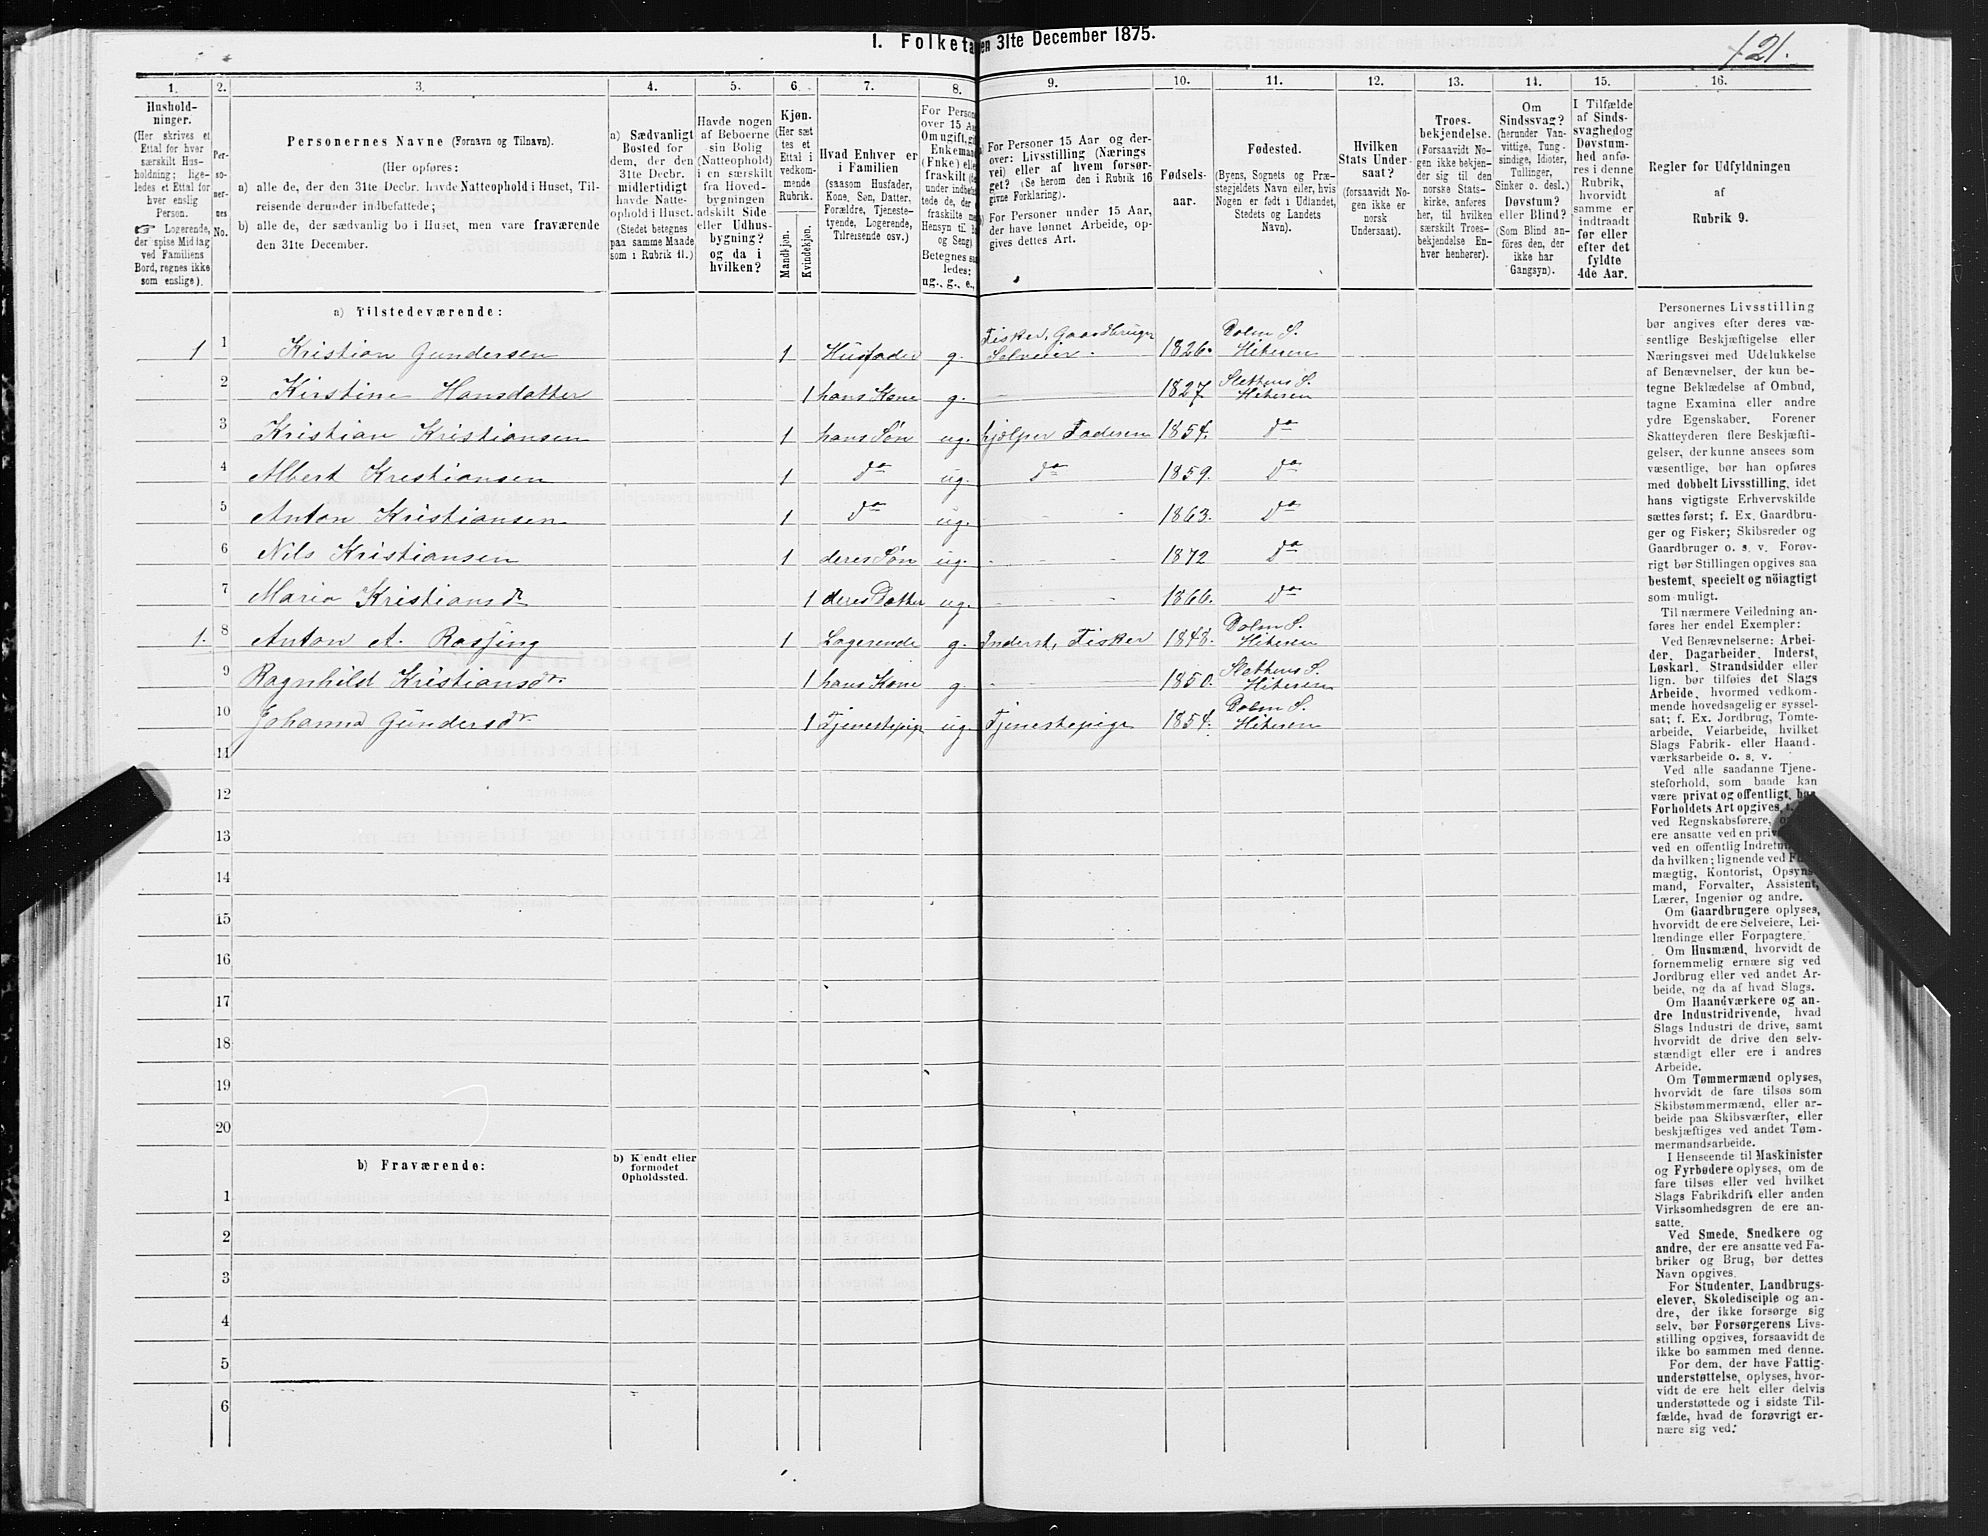 1. Folketa en 31te December 1875.
121.
1. 2. 3. 4. 5. 6. 7. 8. 9. 10. 11. 12. 13. 14. 15. 16.
Hushold-
ninger.
(Her skrives et
Ettal for hver
særskilt Hus-
holdning; lige-
ledes et Ettal for
hver enslig
Person.
☞ Logerende,
der spise Middag
ved Familiens
Bord, regnes ikke
som enslige).
Per-
so-
ner-
nes
No.
Personernes Navne (Fornavn og Tilnavn).
(Her opføres:
a) alle de, der den 31te Decbr. havde Natteophold i Huset, Til-
reisende derunder indbefattede;
b) alle de, der sædvanlig bo i Huset, men vare fraværende
den 31te December.
a) Sædvanligt
Bosted for
dem, der den
31te Decbr.
midlertidigt
havde Natte-
ophold i Huset.
(Stedet betegnes
paa samme Maade
som i Rubrik 11.)
Havde nogen
af Beboerne
sin Bolig
(Natteophold)
i en særskilt
fra Hoved-
bygningen
adskilt Side
eller Udhus-
bygning?
og da i
hvilken?
Kjøn.
(Her sæt
tes et
Ettal i
vedkom-
mende
Rubrik.
Mandkjøn.
Kvindekjøn.
Hvad Enhver er
i Familien
(saasom Husfader,
Kone, Søn, Datter,
Forældre, Tjeneste-
tyende, Logerende,
Tilreisende osv.)
For Person
over 15 Aa
Om ugift, gif
Enkeman
(Enke) elle
fraskilt
under indbef
tede de, der
fraskilte
Hensyn til B
og Seng)
Betegnes saa
ledes:
ug., g., e.,
For Personer 15 Aar og der-
over: Livsstilling (Nærings
vei) eller af hvem forsør-
get? (Se herom den i Rubrik 16
givne Forklaring).
For Personer under 15 Aar,
der have lønnet Arbeide, op-
gives dettes Art.
Fødsels-
aar.
Fødested.
(Byens, Sognets og Præ-
stegjeldets Navn eller, hvis
Nogen er født i Udlandet,
Stedets og Landets
Navn).
Hvilken
Stats Under-
saat?
(forsaavidt No-
gen ikke er
norsk
Undersaat).
Troes-
bekjendelse.
(Forsaavidt No-
gen ikke bekjen-
der sig til den
norske Stats-
kirke, anføres
her, til hvilken
særskilt Troes-
bekjendelse En-
hver henhører).
Om
Sindssvag?
(herunder Van-
vittige, Tung-
sindige, Idioter,
Tullinger,
Sinker o. desl.)
Døvstum?
eller Blind?
(Som Blind an-
føres den, der
ikke har
Gangsyn).
I Tilfælde
af Sinds-
svaghed og
Døvstum-
hed anfø-
res i denne
Rubrik,
hvorvidt
samme er
indtraadt
før eller
efter det
fyldte
4de Aar.
Regler for Udfyldningen
af
Rubrik 9.
a) Tilstedeværende:
1 1 Kristian Gundersen 1 Husfader g. Fisker, Gaardbruger Selveier 1826. Dolm S. Hiteren
2 Kirstine Hansdatter 1 hans Kone g. 1827 Slethens S. Hiteren
3 Kristian Kristiansen 1 hans Søn ug. hjælper Faderen 1854. Do
4 Albert Krestiansen 1 Do ug. Do 1859. Do
5 Anton Kristiansen 1 Do ug. 1863. Do
6 Nils Kristiansen 1 deres Søn ug. 1872 Do
7 Maria Kristiansd 1 deres Datter ug. 1866. Do
1. 8 Anton A. Rosjing 1 Logerende g. Inderst, Fisker 1848. Dolm S. Hiteren
9 Ragnhild Kristiansdr. 1 hans Kone g. 1850. Slethens S. Hiteren
10 Johanna Gundersdr. 1 Tjenestepige ug. Tjenestepige 1854. Dolm S. Hiteren
11
12
13
14
15
16
17
18
19
20
b) Fraværende:
b) Kjendt eller
formodet
Opholdssted.
1
2
3
4
5
6
Personernes Livsstilling
bør angives efter deres væ-
sentlige Beskjæftigelse eller
Næringsvei med Udelukkelse
af Benævnelser, der kun be-
tegne Beklædelse af Ombud,
tagne Examina eller andre
ydre Egenskaber. Forener
Skatteyderen flere Beskjæfti-
gelser, der kunne ansees som
væsentlige, bør han opføres
med dobbelt Livsstilling, idet
hans vigtigste Erhvervskilde
sættes først; f. Ex. Gaardbru-
ger og Fisker; Skibsreder og
Gaardbruger o. s. v. Forøv-
rigt bør Stillingen opgives saa
bestemt, specielt og nöiagtigt
som muligt.
Til nærmere Veiledning an-
føres her endel Exempler:
Ved Benævnelserne: Arbei-
der, Dagarbeider, Inderst,
Løskarl, Strandsidder eller
lign. bør tilføies det Slags
Arbeide, hvormed vedkom-
mende hovedsagelig er syssel-
sat; f. Ex. Jordbrug, Tomte-
arbeide, Veiarbeide, hvilket
Slags Fabrik- eller Haand-
værksarbeide o. s. v.
Ved alle saadanne Tjene-
steforhold, som baade kan
være privat og offentligt, bør
Forholdets Art opgives,
ved Regnskabsførere,
ere ansatte ved en priv
ved en offentlig Indretn
da hvilken; lignende ved F
mægtig, Kontorist, Opsyns-
mand, Forvalter, Assistent,
Lærer, Ingeniør og andre.
Om Gaardbrugere oplyses,
hvorvidt de ere Selveiere, Lei-
lændinge eller Forpagtere.
Om Husmænd, hvorvidt de
fornemmelig ernære sig ved
Jordbrug eller ved andet Ar-
beide, og da af hvad Slags.
Om Haandværkere og an-
dre Industridrivende, hvad
Slags Industri de drive, samt
hvorvidt de drive den selv-
stændigt eller ere i andres
Arbeide.
Om Tømmermænd oplyses,
hvorvidt de fare tilsøs som
Skibstømmermænd, eller ar-
beide paa Skibsværfter, eller
beskjæftiges ved andet Tøm-
mermandsarbeide.
I Henseende til Maskinister
og Fyrbødere oplyses, om de
fare tilsøs eller ved hvilket
Slags Fabrikdrift eller anden
Virksomhedsgren de ere an-
satte.
Ved Smede, Snedkere og
andre, der ere ansatte ved Fa-
briker og Brug, bør dettes
Navn opgives.
For Studenter, Landbrugs-
elever, Skoledisciple og an-
dre, der ikke forsørge sig
selv, bør Forsørgerens Livs-
stilling opgives, forsaavidt de
ikke bo sammen med denne.
For dem, der have Fattig-
understøttelse, oplyses, hvor-
vidt de ere helt eller delvis
understøttede og i sidste Til-
fælde, hvad de forøvrigt er-
nære sig ved.